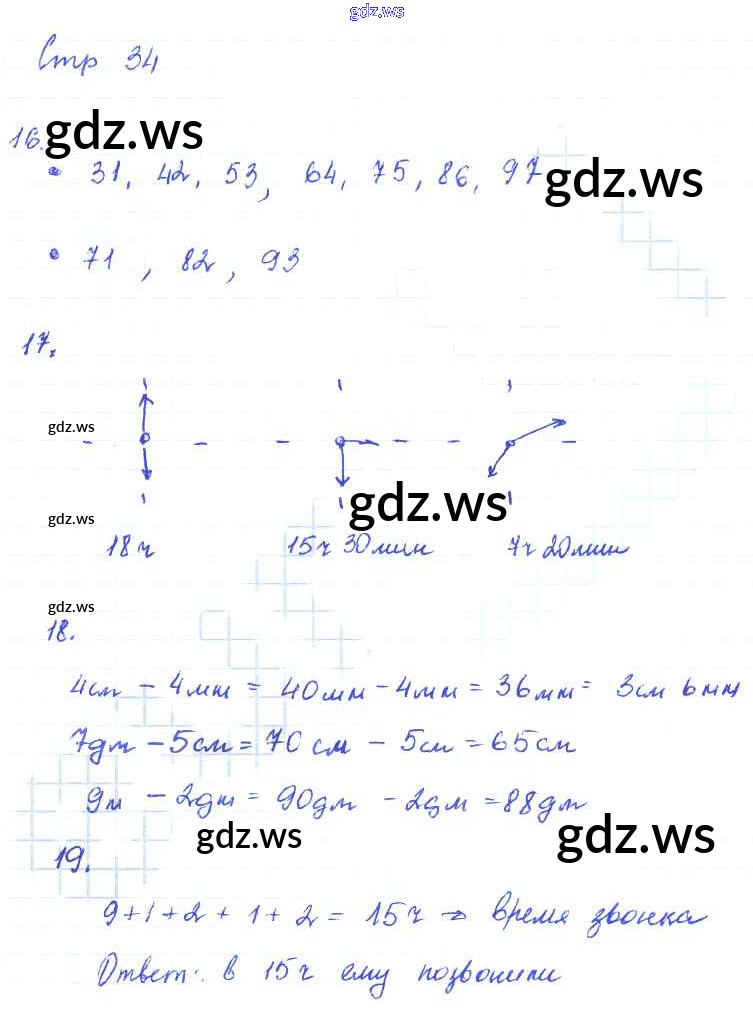 gdz.ws
Стр 34
16. gdz.ws
• 31, 42, 53, 64, 75, 86, 97 gdz.ws
• 71, 82, 93
17.
gdz.ws
gdz.ws
gdz.ws
18ч 15ч 30мин 7ч 20мин
gdz.ws
18.
4см - 4мм = 40мм - 4мм = 36мм = 3см 6мм
7дм - 5см = 70см - 5см = 65см
9м - 2дм = 90дм - 2дм = 88дм
gdz.ws gdz.ws
19.
9+1+2+1+2 = 15ч → время звонка
Ответ: в 15ч ему позвонили